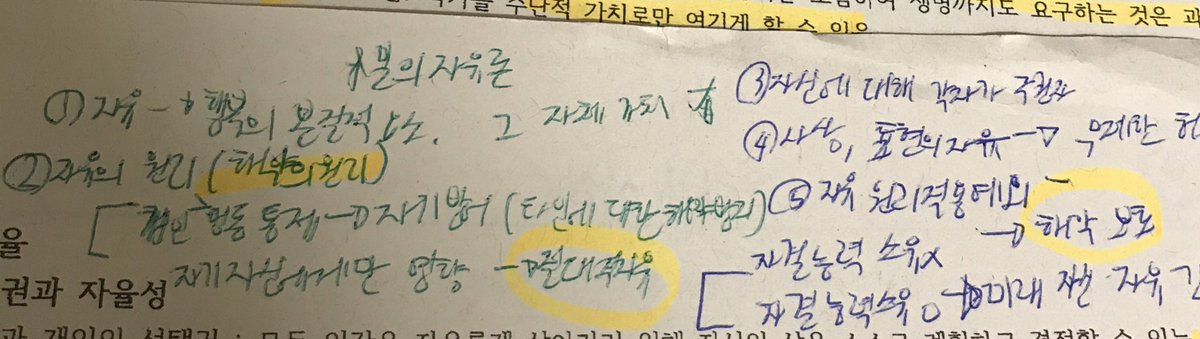 수단적 가치로만 여기게 할 수 있으
생명까지도 요구하는 것은 과
밀의 자유론
① 자유 → 행복의 본질적 요소. 그 자체 가치 有
② 자유의 원리 (해악의 원리)
개인 행동 통제 → 자기방어 (타인에 대한 해악방지)
자기자신에게만 영향 → 절대적자유
③ 자신에 대해 각자가 주권자
④ 사상, 표현의자유 → 무제한 허
⑤ 자유 원리적용예외
→ 해악
자결능력 소유x
자결능력소유 o → 미래 자유
율
권과 자율성
과 개인의 선택권 : 모든 인간은 자유롭게 살아가기 위해 자신의 삶을 스스로 계획하고 결정할 수 있는